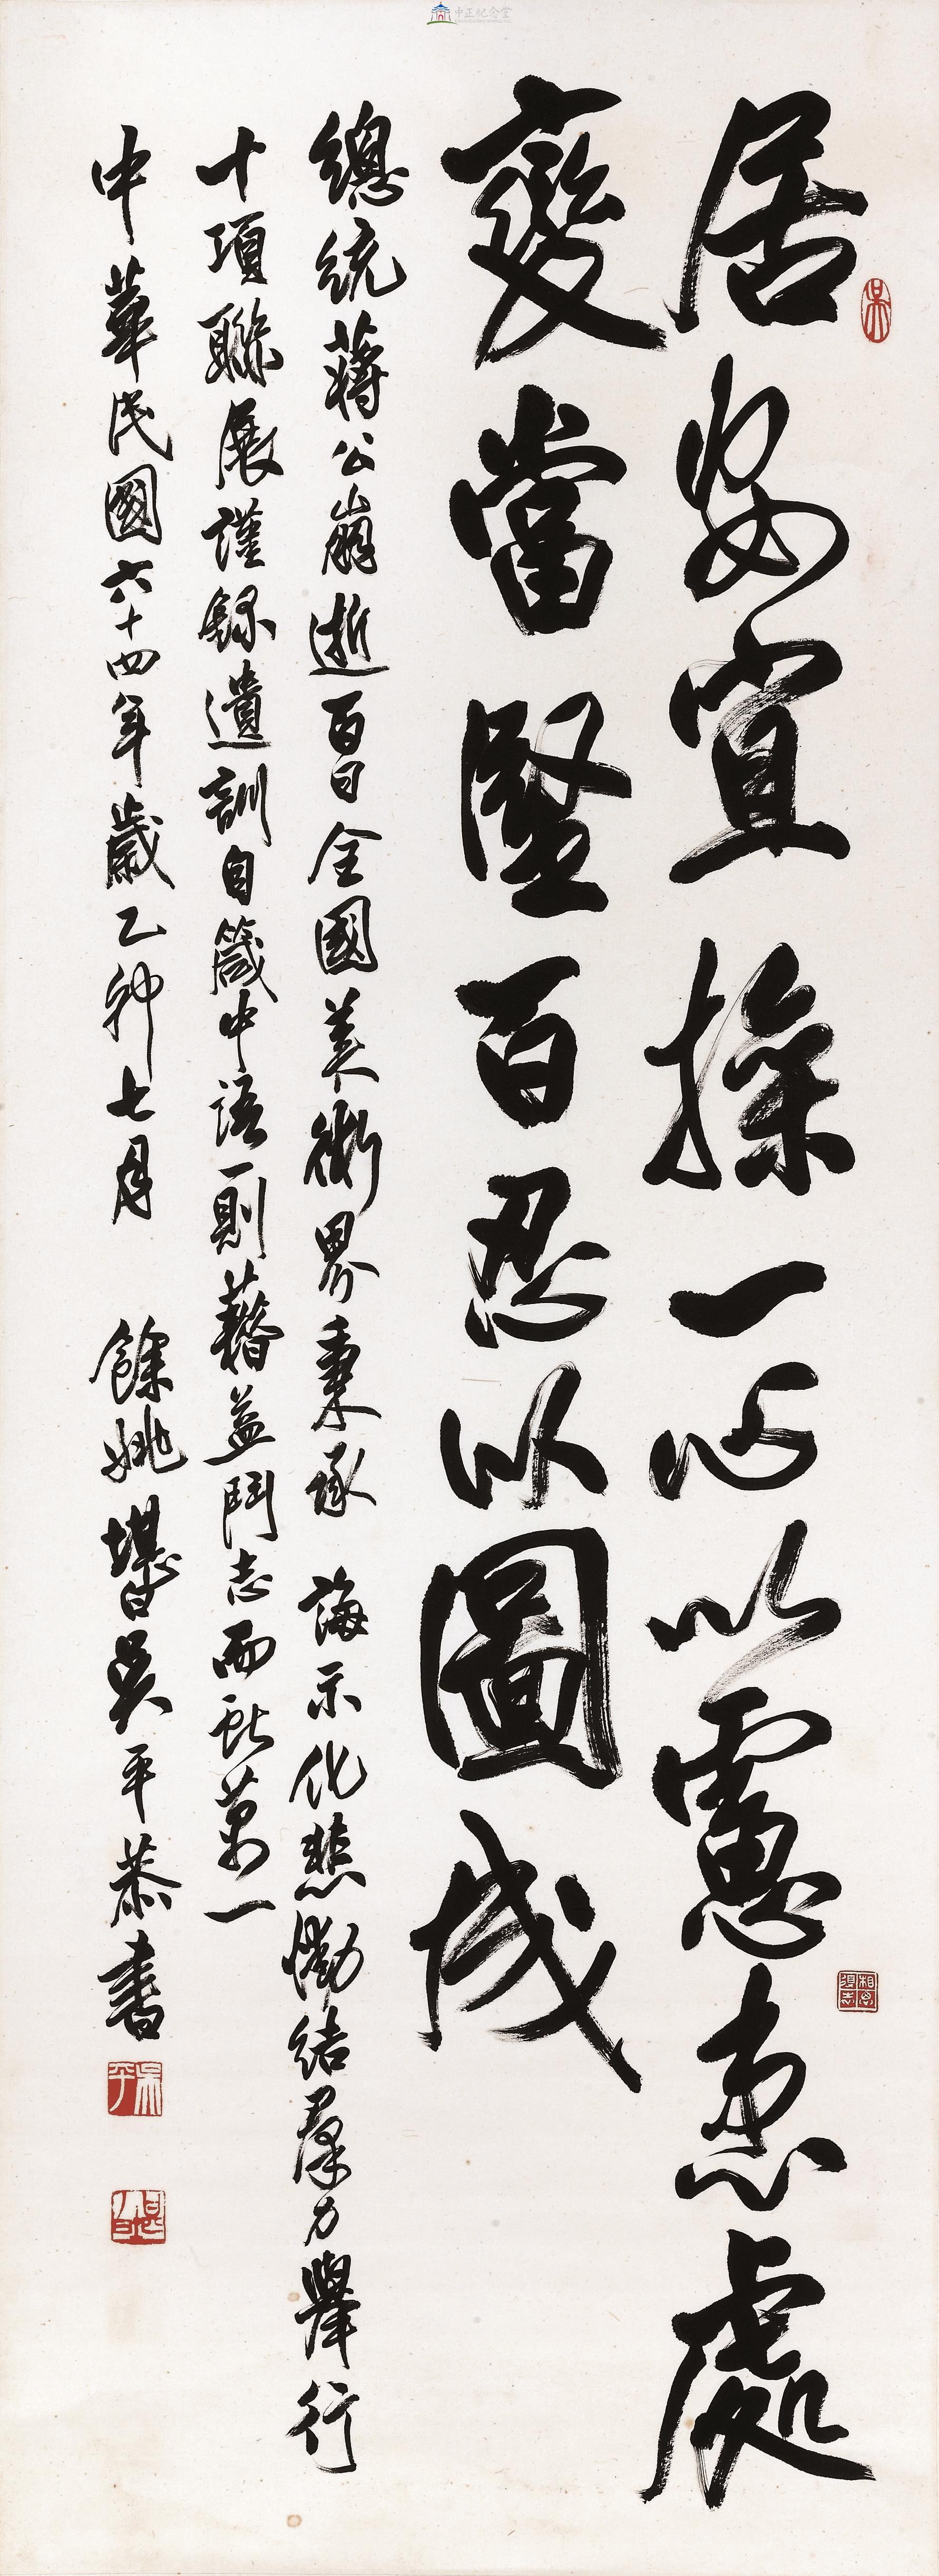 居安宜操一心以慮患處
變當堅百忍以圖成
總統蔣公崩逝百日全國美術界秉承 誨示化悲慟結羣力舉行
十項聯展謹錄遺訓自箴中語一則藉益鬥志而獻萬一
中華民國六十四年歲乙卯七月 餘姚堪白吳平恭書
吳平
中正紀念堂